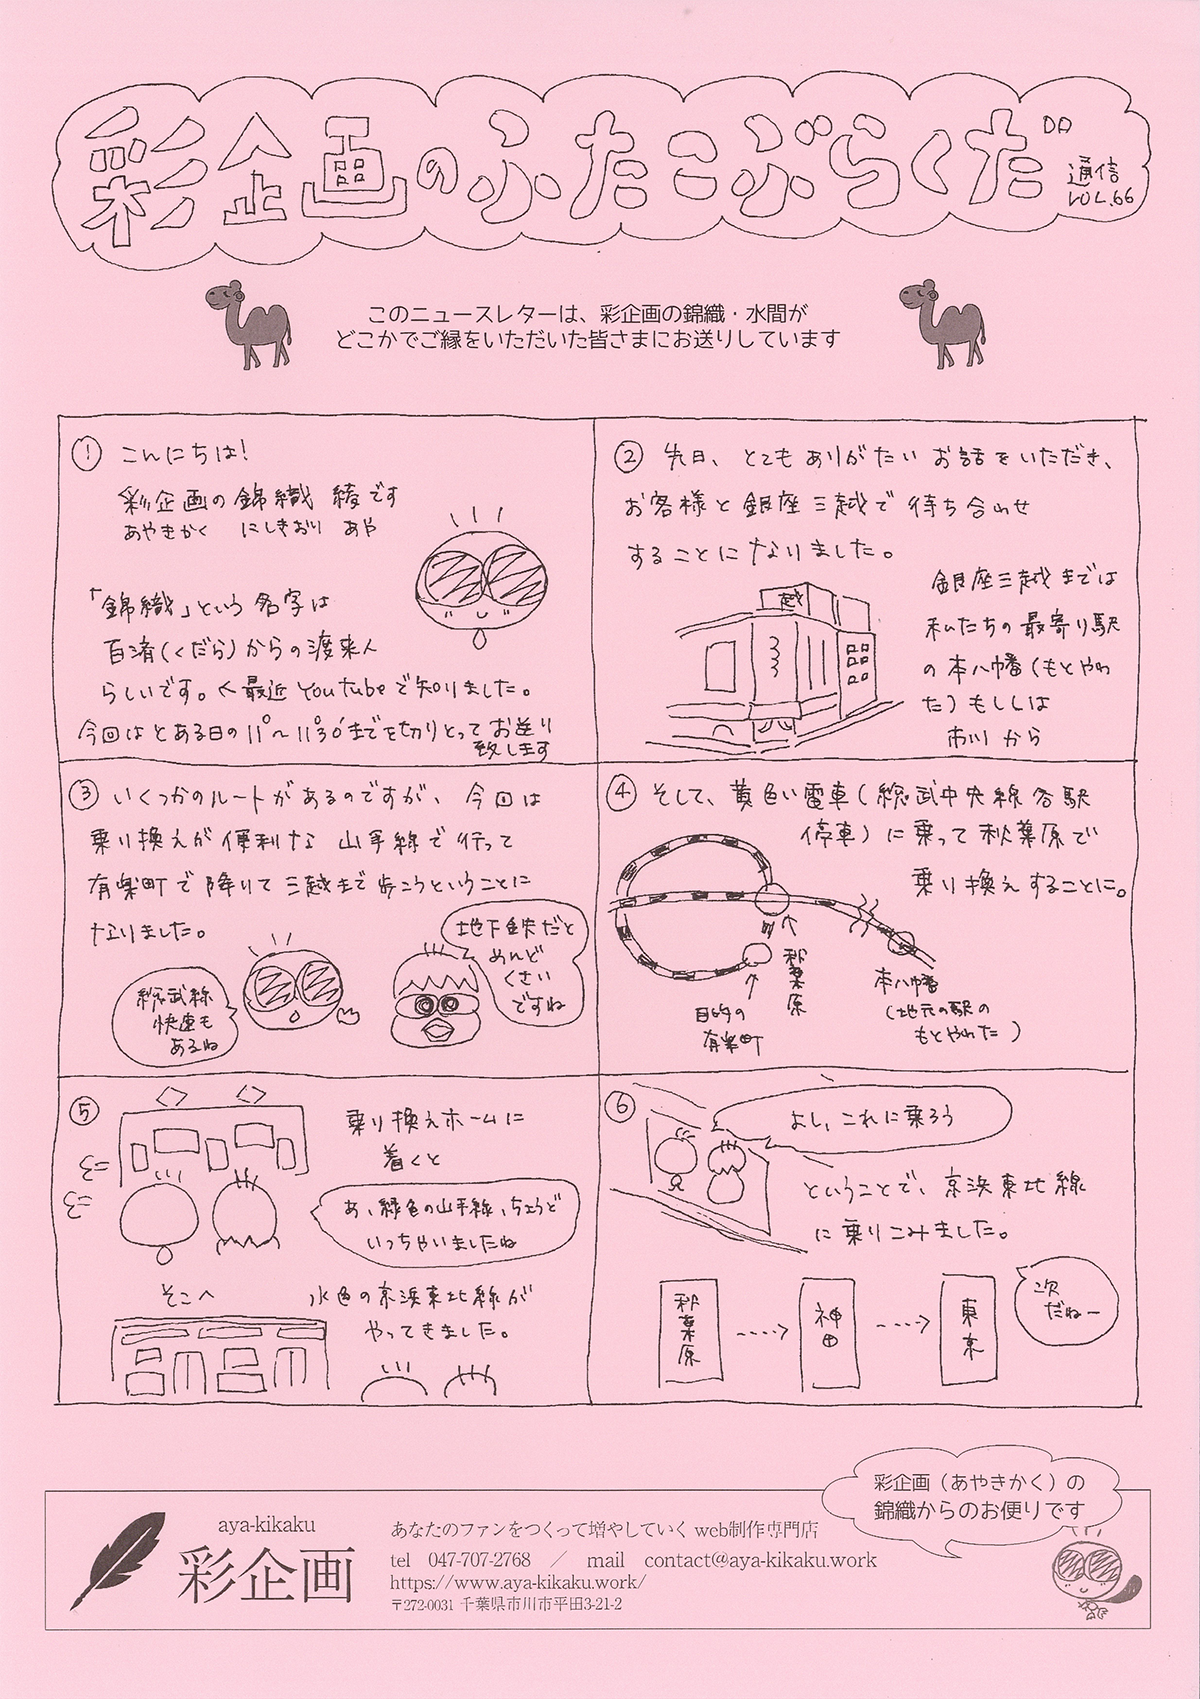 彩企画のふたこぶらくだ DA 通信 VOL.66
このニュースレターは、彩企画の錦織・水間が
どこかでご縁をいただいた皆さまにお送りしています
① こんにちは!
彩企画の錦織 綾です
あやきかく にしきおり あや
「錦織」という名字は
百済(くだら)からの渡来人
らしいです。←最近YouTubeで知りました。
今回はとある日の11°°〜11°30′までを切りとってお送り
致します
② 先日、とてもありがたいお話をいただき、
お客様と銀座三越で待ち合わせ
することになりました。
越
銀座三越までは
私たちの最寄り駅
の本八幡(もとやわ
た)もしくは
市川から
③ いくつかのルートがあるのですが、今回は
乗り換えが便利な山手線で行って
有楽町で降りて三越まで歩こうということに
なりました。
総武線
快速も
あるね
地下鉄だと
めんど
くさい
ですね
④ そして、黄色い電車(総武中央線各駅
停車)に乗って秋葉原で
乗り換えすることに。
秋葉原
目的の
有楽町
本八幡
(地元の駅の
もとやわた)
⑤ 乗り換えホームに
着くと
あ、緑色の山手線、ちょうど
いっちゃいましたね
そこへ
水色の京浜東北線が
やってきました。
⑥ よし、これに乗ろう
ということで、京浜東北線
に乗りこみました。
秋葉原 ----> 神田 ----> 東京
次
だねー
彩企画(あやきかく)の
錦織からのお便りです
aya-kikaku
彩企画
あなたのファンをつくって増やしていく web制作専門店
tel 047-707-2768 / mail contact@aya-kikaku.work
https://www.aya-kikaku.work/
〒272-0031 千葉県市川市平田3-21-2